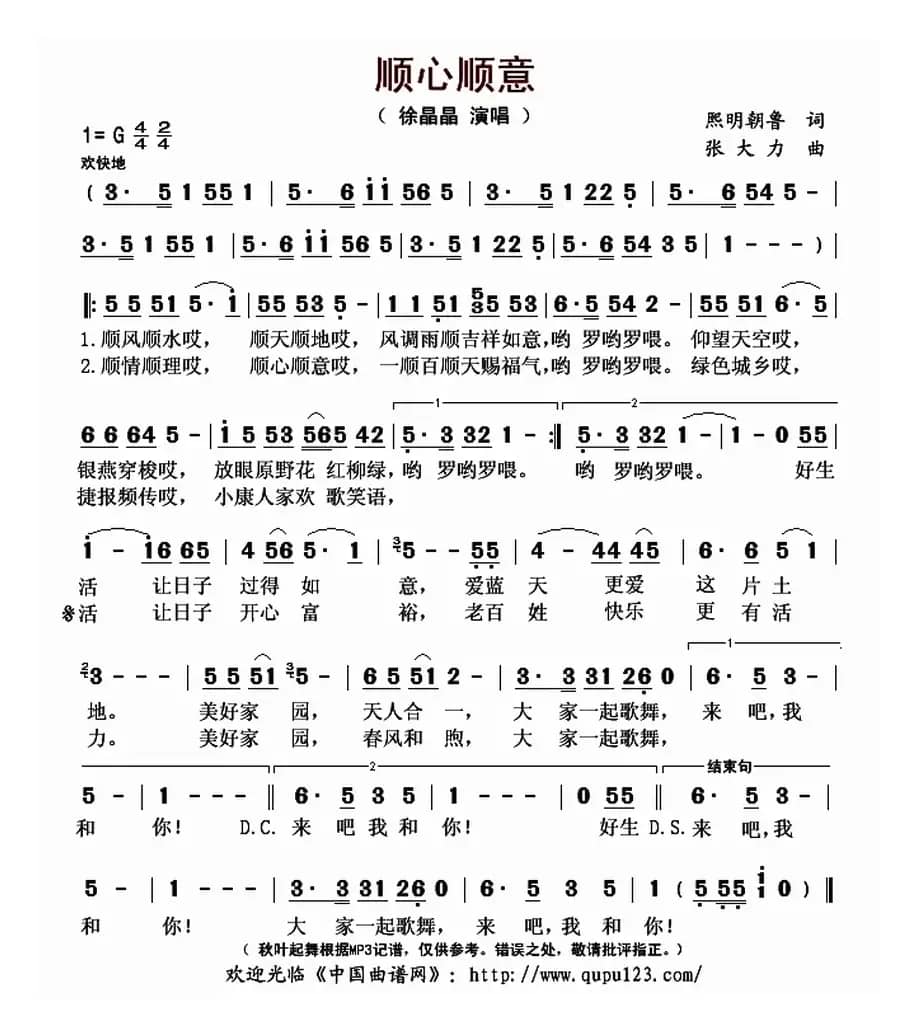 顺心顺意
（ 徐晶晶 演唱 ）
1= G 4/4 2/4
熙明朝鲁 词
张 大 力 曲
欢快地
( 3· 5 1 55 1 | 5· 6 i i 56 5 | 3· 5 1 22 5 | 5· 6 54 5 - |
3· 5 1 55 1 | 5· 6 i i 56 5 | 3· 5 1 22 5 | 5· 6 54 3 5 | 1 - - - ) |
‖: 5 5 51 5· i | 55 53 5 - | 1 1 51 5/3 35 53 | 6· 5 54 2 - | 55 51 6· 5 |
1.顺风顺水哎， 顺天顺地哎， 风调雨顺吉祥如意,哟 罗哟罗喂。 仰望天空哎，
2.顺情顺理哎， 顺心顺意哎， 一顺百顺天赐福气,哟 罗哟罗喂。 绿色城乡哎，
1 2
6 6 64 5 - | i 5 53 565 42 | 5· 3 32 1 - :‖ 5· 3 32 1 - | 1 - 0 55 |
银燕穿梭哎， 放眼原野花 红柳绿,哟 罗哟罗喂。 哟 罗哟罗喂。 好生
捷报频传哎， 小康人家欢 歌笑语，
i - i6 65 | 4 56 5· 1 | 3 5 - - 55 | 4 - 44 45 | 6· 6 5 1 |
活 让日子 过得 如 意， 爱蓝 天 更爱 这 片 土
※活 让日子 开心 富 裕， 老百 姓 快乐 更 有 活
1
2 3 - - - | 5 5 51 3 5 - | 6 5 51 2 - | 3· 3 31 26 0 | 6· 5 3 - |
地。 美好家 园， 天人合 一， 大 家一起歌舞， 来 吧,我
力。 美好家 园， 春风和 煦， 大 家一起歌舞，
2 结束句
5 - | 1 - - - ‖ 6· 5 3 5 | 1 - - - | 0 55 ‖ 6· 5 3 - |
和 你! D.C. 来 吧 我 和 你! 好生 D.S.来 吧,我
5 - | 1 - - - | 3· 3 31 26 0 | 6· 5 3 5 | 1 ( 5 55 i/1 0 ) ‖
和 你! 大 家一起歌舞， 来 吧,我 和 你!
（ 秋叶起舞根据MP3记谱，仅供参考。错误之处，敬请批评指正。）
欢迎光临《中国曲谱网》：http://www.qupu123.com/